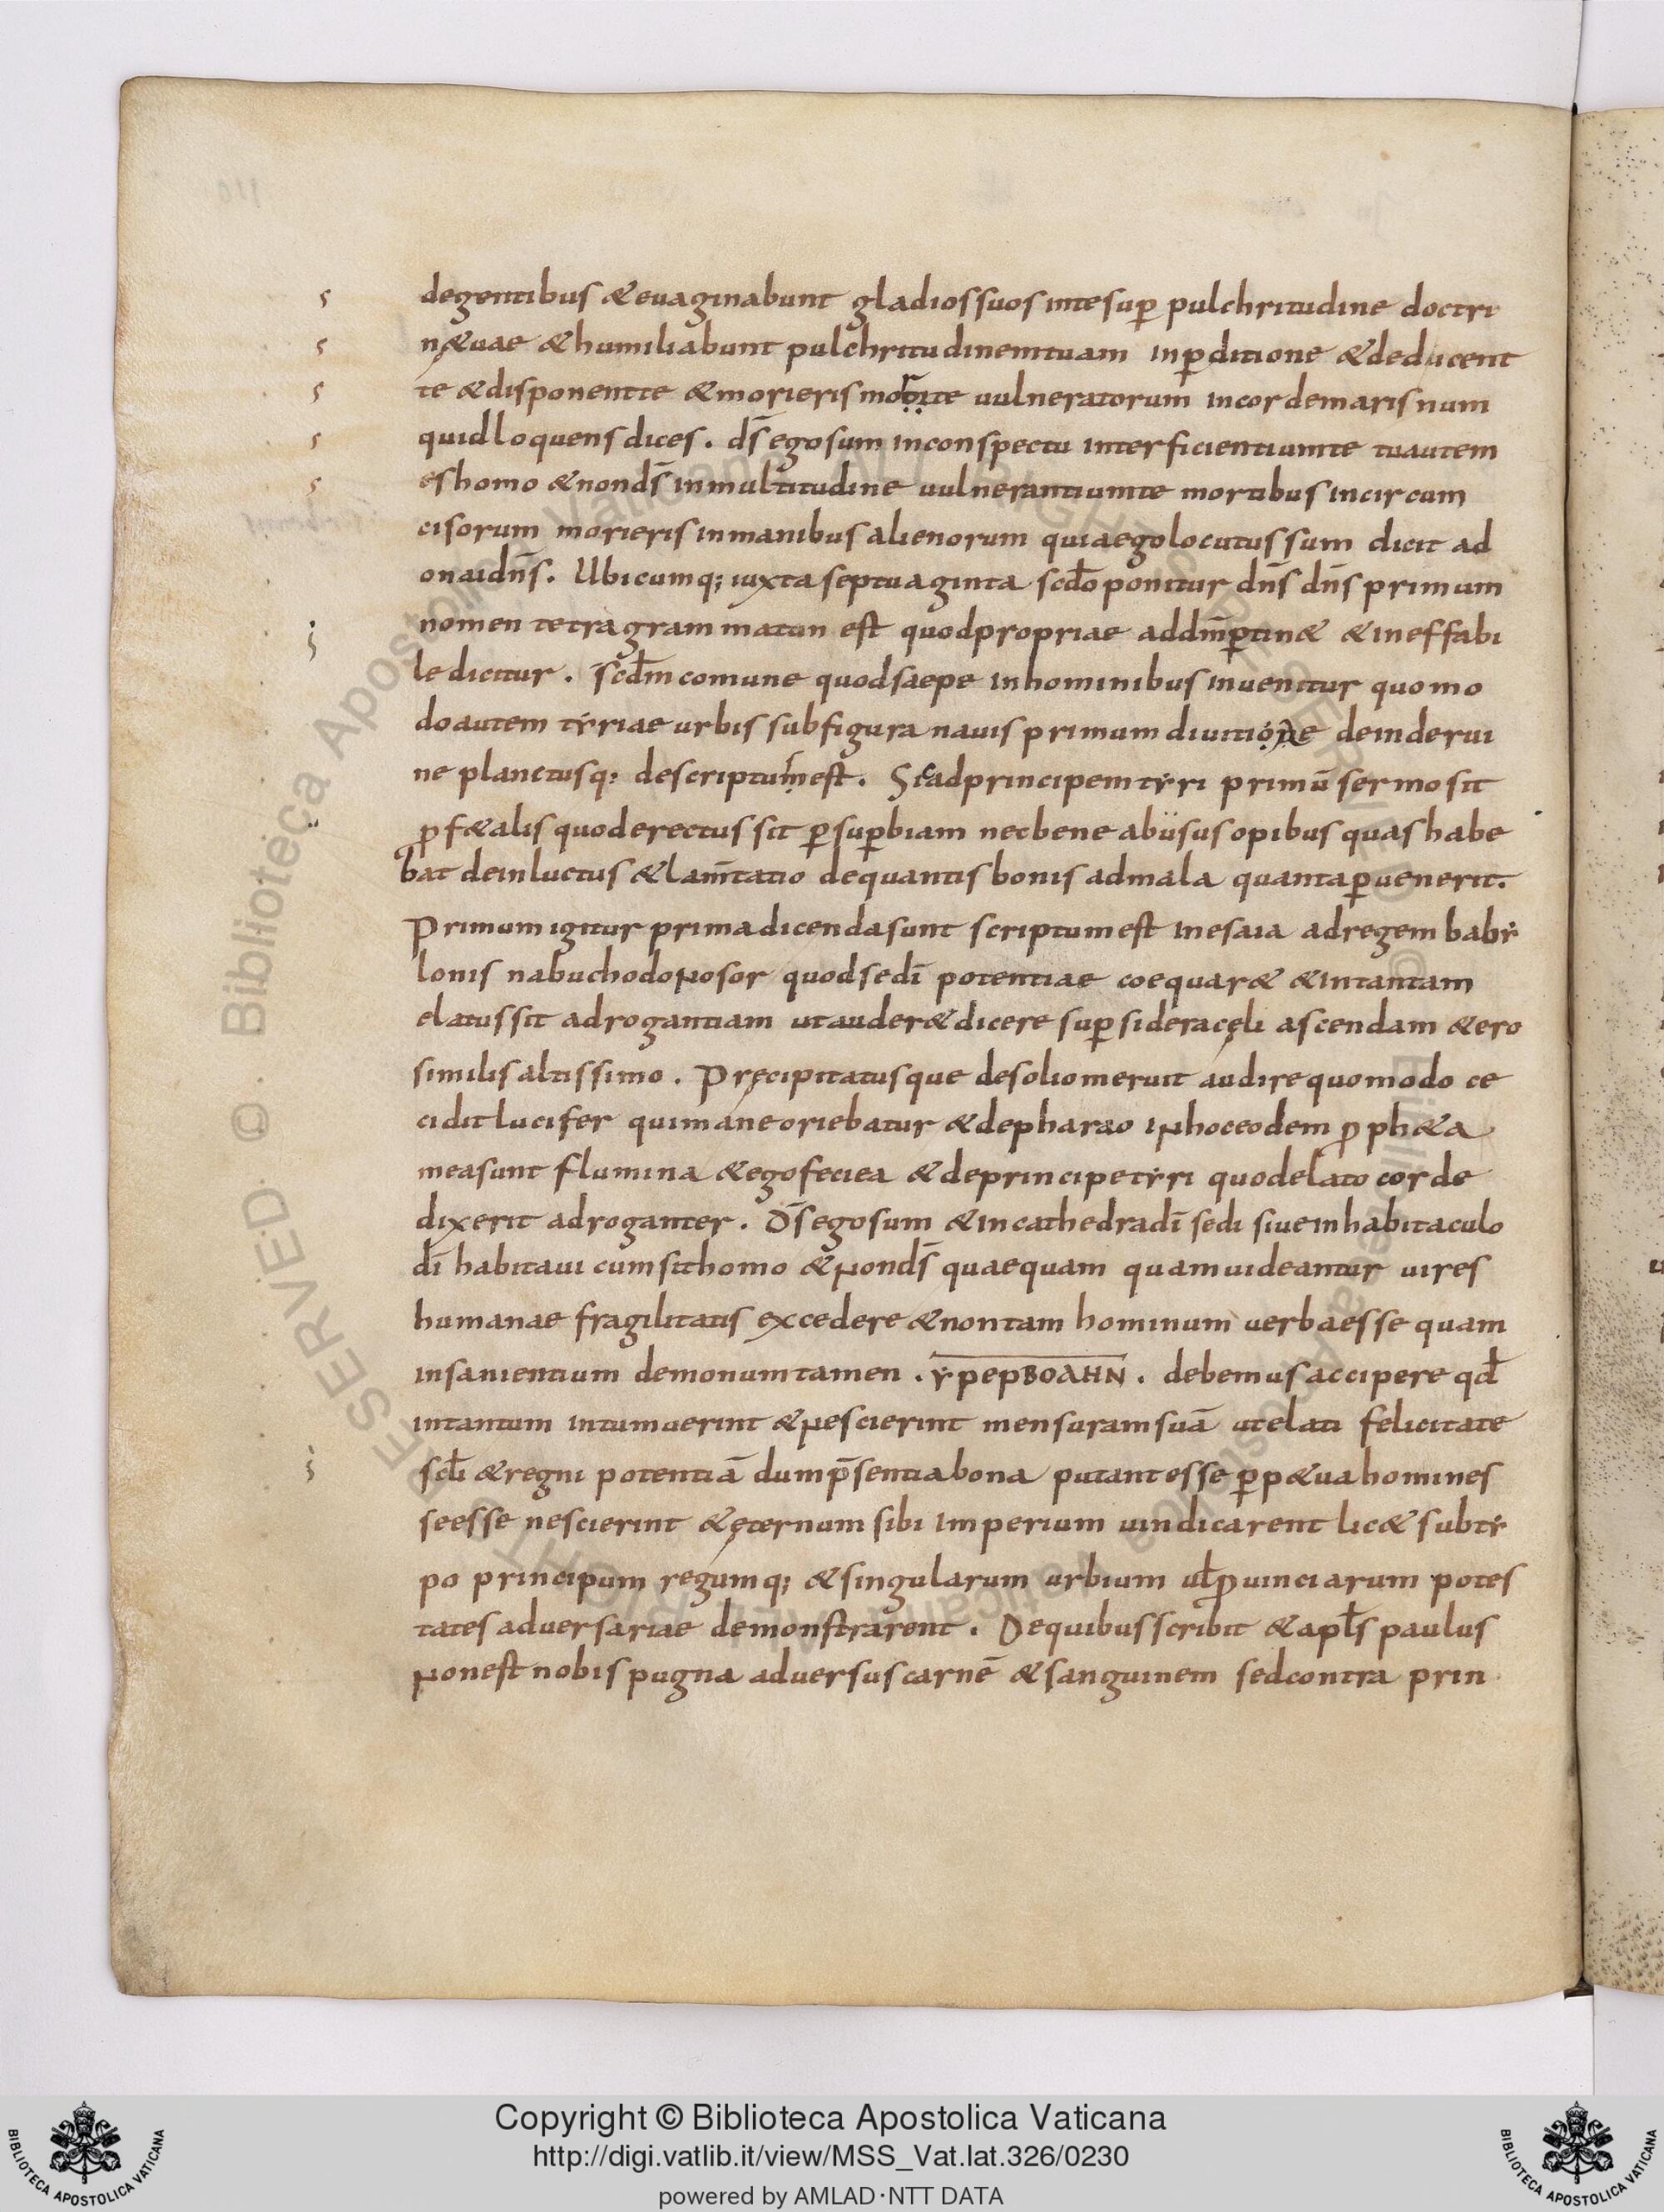 degentibus & euaginabunt gladios suos in te sup̄ pulchritudine doctri
n&uae & humiliabunt pulchritudinem tuam in p̄ditione & deducent
te & disponent te & morieris morte uulneratorum in corde maris num
quid loquens dices . d̄s ego sum in conspectu interficientium te tu autem
es homo & non d̄s in multitudine uulnerantium te mortibus incircum
cisorum morieris in manibus alienorum quia ego locutus sum dicit ad
onai dn̄s . Ubicumq; iuxta septuaginta scd̄o ponitur dn̄s dn̄s primum
nomen tetragrammaton est quod propriae ad dm̄ p̄tin& & ineffabi
le dicitur . Scd̄m comune quod saepe in hominibus inuenitur quomo
do autem tẏriae urbis sub figura nauis primum diuitiae dein de rui
ne planctusq; descriptus est . Sic ad principem tẏri primū sermo fit
ꝓf&alis quod erectus sit ꝑ sup̄biam nec bene abusus opibus quas habe
bat dein luctus & lam̄tatio de quantis bonis ad mala quanta ꝑuenerit .
Primum igitur prima dicenda sunt scriptum est in esaia ad regem babẏ
lonis nabuchodonosor quod se dī potentiae coequar& & in tantam
elatus sit adrogantiam ut auder& dicere sup̄ sidera cęli ascendam & ero
similis altissimo . Pręcipitatusque de solio meruit audire quomodo ce
cidit lucifer qui mane oriebatur & de pharao in hoc eodem ꝓph&a
mea sunt flumina & ego feci ea & de principe tẏri quod elato corde
dixerit adroganter . D̄s ego sum & in cathedra dī sedi siue in habitaculo
dī habitaui cum sit homo & non d̄s quae quam quam uideantur uires
humanae fragilitatis excedere & non tam hominum uerba esse quam
insanientium demonum tamen . ẎPEPBOΛHN . debemus accipere qd̄
in tantum intumuerint & nescierint mensuram suā ut elati felicitate
scl̄i & regni potentiā dum p̄sentia bona putant esse ꝑp&ua homines
se esse nescierint & ęternum sibi imperium uindicarent lic& sub tẏ
po principum regumq; & singularum urbium ul̄ ꝓuinciarum potes
tates aduersariae demonstrarent . De quibus scribit & apl̄s paulus
non est nobis pugna aduersus carnē & sanguinem sed contra prin
Copyright © Biblioteca Apostolica Vaticana
http://digi.vatlib.it/view/MSS_Vat.lat.326/0230
powered by AMLAD·NTT DATA